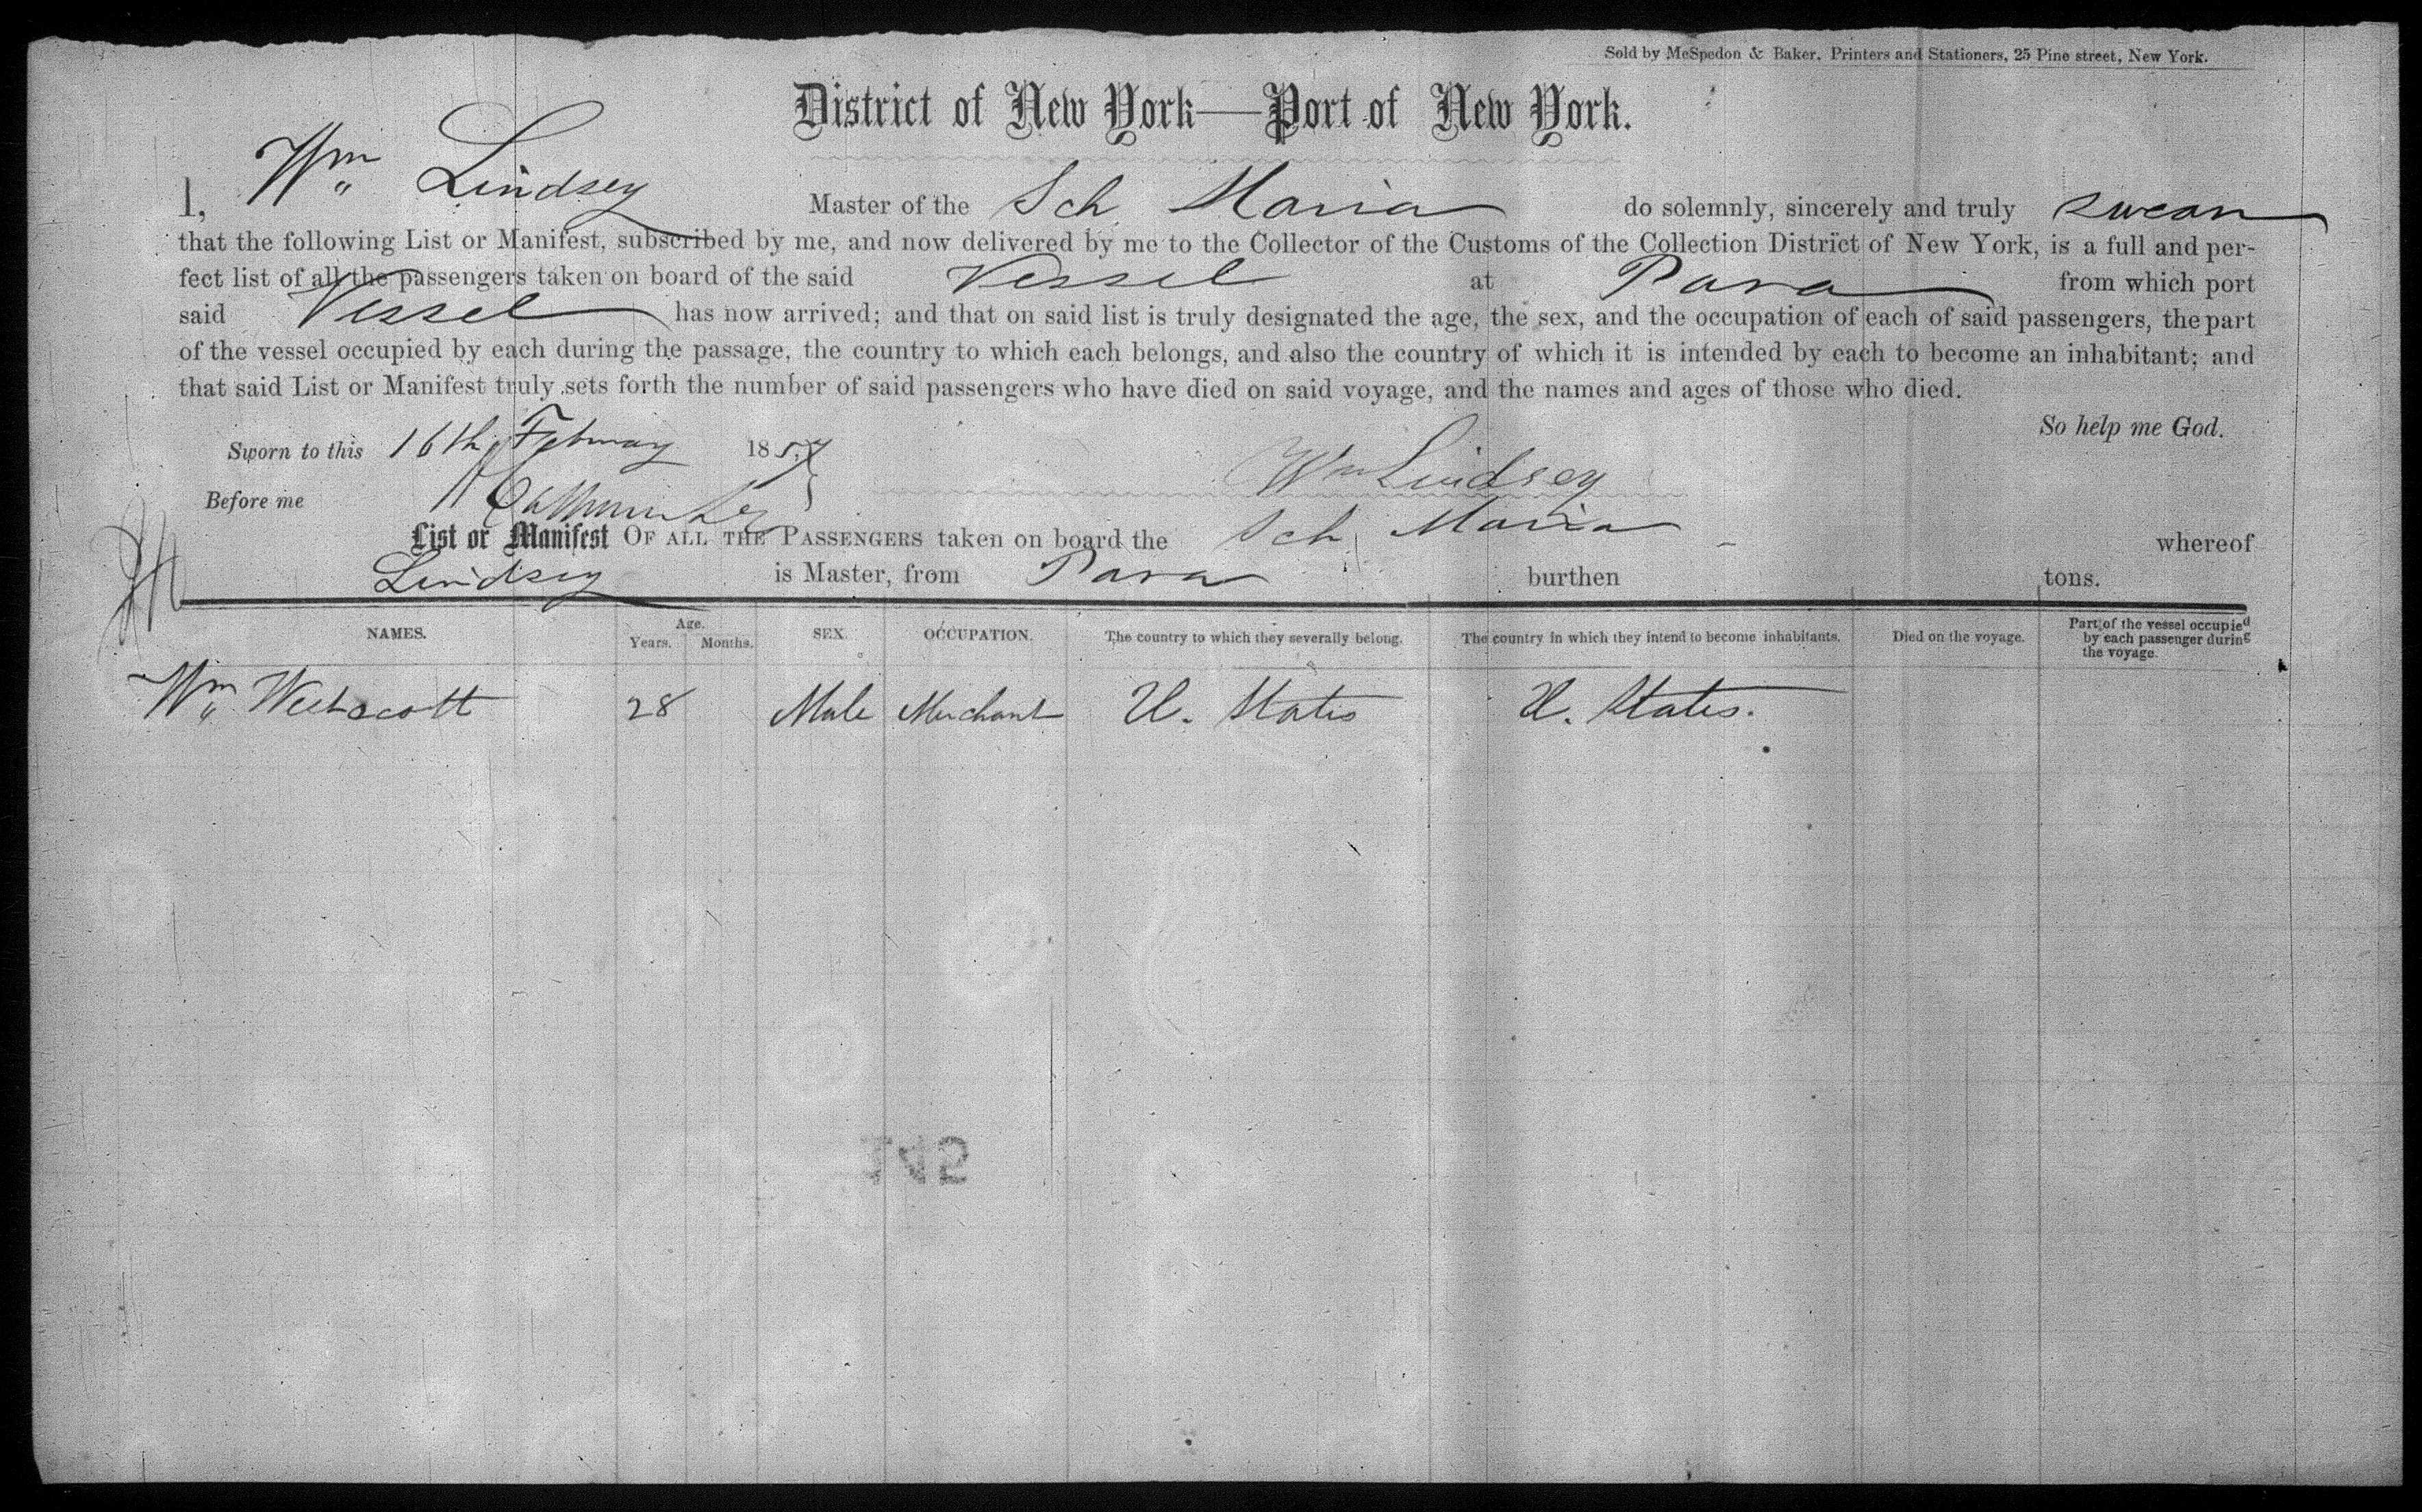 Sold by McSpedon & Baker, Printers and Stationers, 25 Pine street, New York.
District of New York—Port of New York.
I, Wm Lindsey Master of the Sch Maria do solemnly, sincerely and truly swear
that the following List or Manifest, subscribed by me, and now delivered by me to the Collector of the Customs of the Collection District of New York, is a full and per-
fect list of all the passengers taken on board of the said Vessel at Para from which port
said Vessel has now arrived; and that on said list is truly designated the age, the sex, and the occupation of each of said passengers, the part
of the vessel occupied by each during the passage, the country to which each belongs, and also the country of which it is intended by each to become an inhabitant; and
that said List or Manifest truly sets forth the number of said passengers who have died on said voyage, and the names and ages of those who died.
So help me God.
Sworn to this 16th February 1857
Wm Lindsey
Before me
List or Manifest OF ALL THE PASSENGERS taken on board the Sch Maria whereof
Lindsey is Master, from Para burthen tons.
NAMES. Age. Years. Months. SEX. OCCUPATION. The country to which they severally belong. The country in which they intend to become inhabitants. Died on the voyage. Part of the vessel occupied by each passenger during the voyage.
Wm 28 Male Merchant U. States U. States.